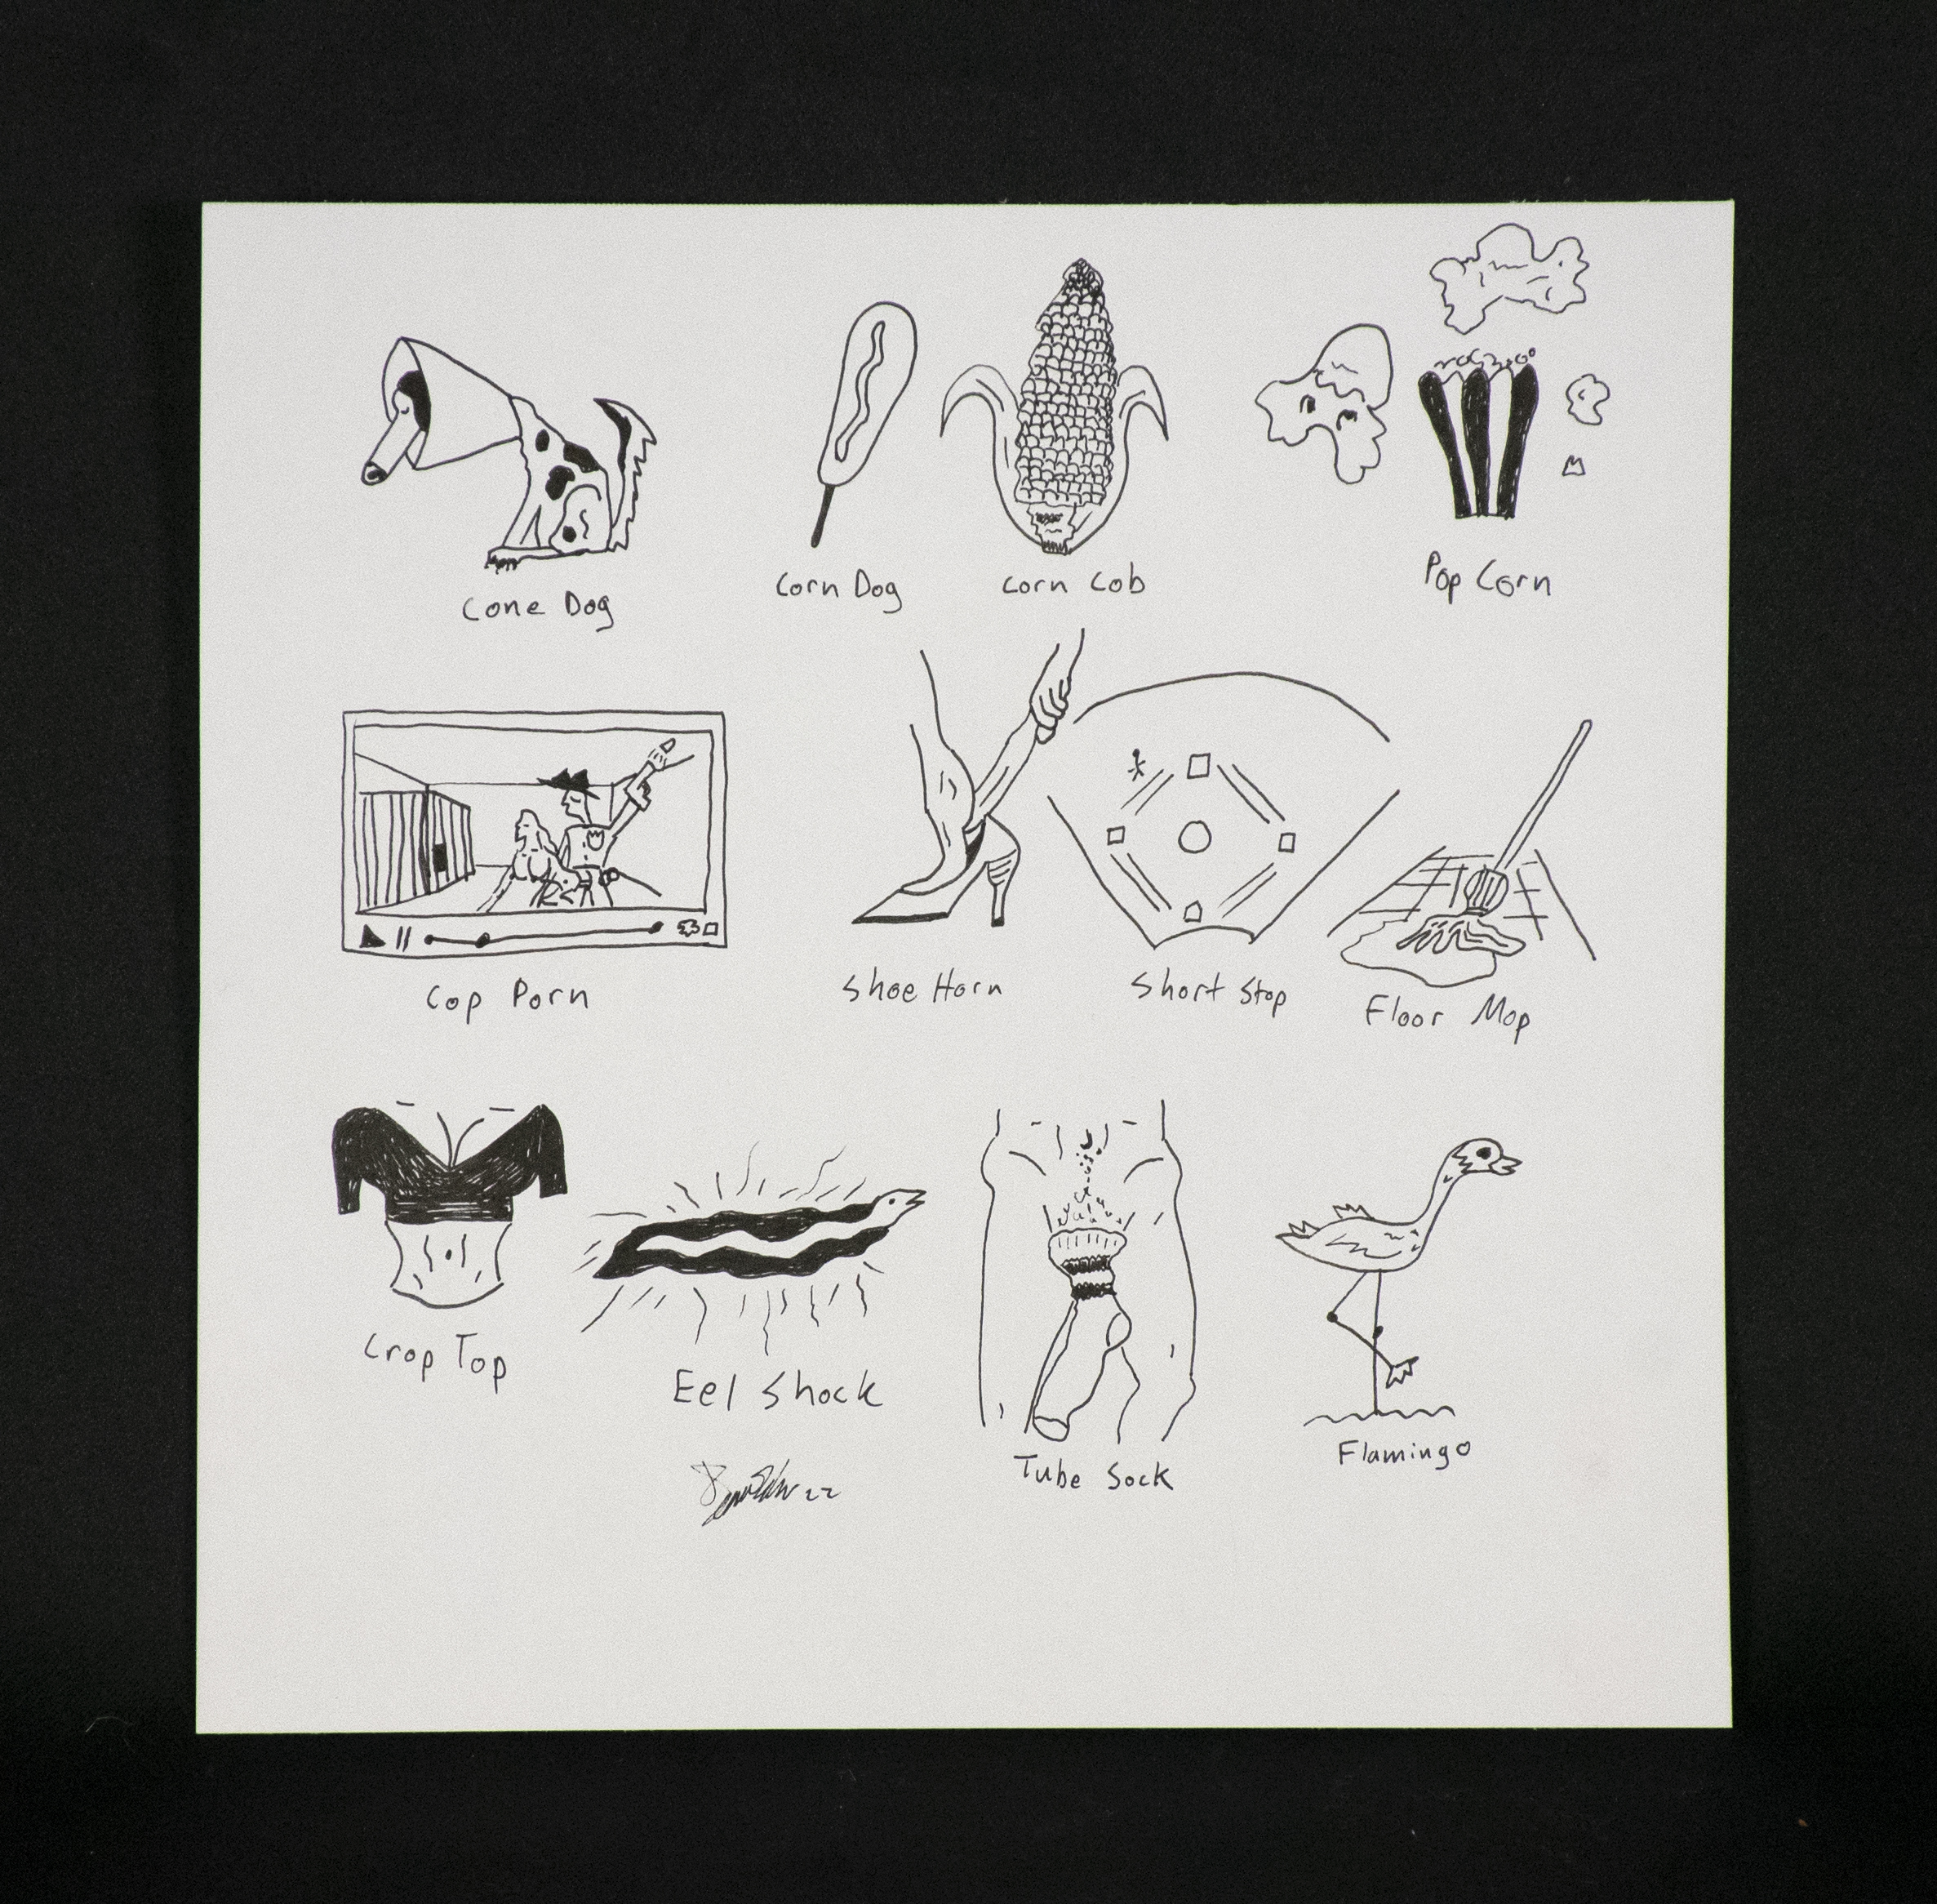 Cone Dog
Corn Dog
Corn Cob
Pop Corn
Cop Porn
Shoe Horn
Short Stop
Floor Mop
Crop Top
Eel Shock
Tube Sock
Flamingo
22